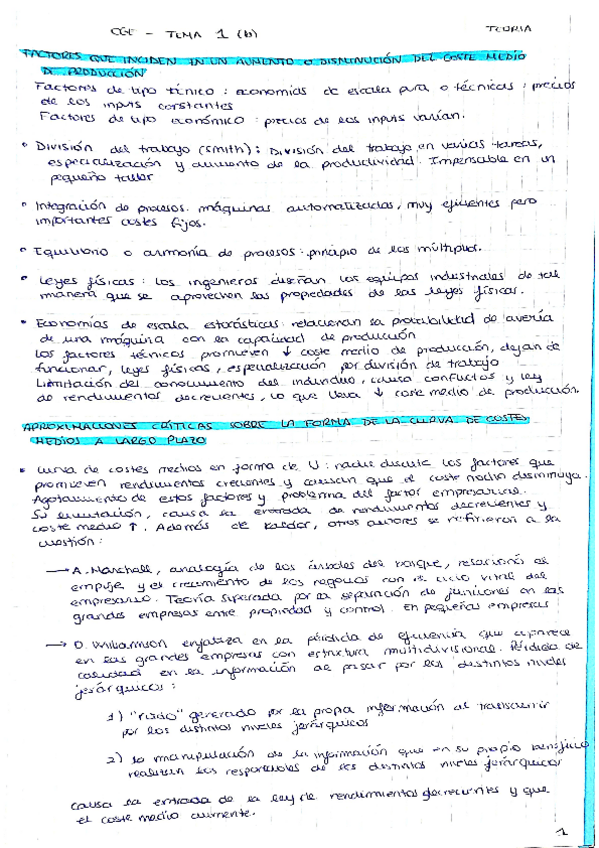 CGE - TEMA 1 (b) TEORIA
FACTORES QUE INCIDEN EN UN AUMENTO O DISMINUCIÓN DEL COSTE MEDIO
DE PRODUCCIÓN
Factores de tipo técnico : economías de escala pura o técnicas : precios
de los inputs constantes
Factores de tipo económico : precios de los inputs varían.
• División del trabajo (Smith) : División del trabajo en varias tareas,
especialización y aumento de la productividad. Impensable en un
pequeño taller
• Integración de procesos. máquinas automatizadas, muy eficientes pero
importantes costes fijos.
• Equilibrio o armonía de procesos : principio de los múltiplos.
• Leyes físicas : los ingenieros diseñan los equipos industriales de tal
manera que se aprovechen las propiedades de las leyes físicas.
• Economías de escala estocásticas relacionan la probabilidad de avería
de una máquina con la capacidad de producción
Los factores técnicos promueven ↓ coste medio de producción, dejan de
funcionar, leyes físicas, especialización por división de trabajo
Limitación del conocimiento del individuo, causa conflictos y ley
de rendimientos decrecientes, lo que lleva ↓ coste medio de producción.
APROXIMACIONES CRÍTICAS SOBRE LA FORMA DE LA CURVA DE COSTES
MEDIOS A LARGO PLAZO
• Curva de costes medios en forma de U : nadie discute los factores que
promueven rendimientos crecientes y causan que el coste medio disminuya.
Agotamiento de estos factores y problema del factor empresarial.
Su limitación, causa la entrada de rendimientos decrecientes y
coste medio ↑. Además de Kaldor, otros autores se refirieron a la
cuestión :
→ A. Marshall, analogía de los árboles del bosque, relacionó el
empuje y el crecimiento de los negocios con el ciclo vital del
empresario. Teoría superada por la separación de funciones en las
grandes empresas entre propiedad y control. En pequeñas empresas
→ O. Williamson enfatiza en la pérdida de eficiencia que aparece
en las grandes empresas con estructura multidivisional. Pérdida de
calidad en la información al pasar por los distintos niveles
jerárquicos :
1) "ruido" generado por la propia información al transcurrir
por los distintos niveles jerárquicos
2) la manipulación de la información que en su propio beneficio
realizan los responsables de los distintos niveles jerárquicos
causa la entrada de la ley de rendimientos decrecientes y que
el coste medio aumente.
1